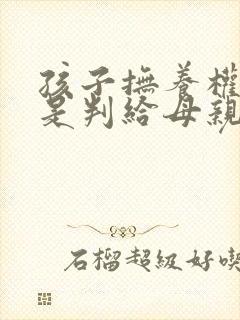 孩子撫養權
是判給母親
石榴超級好喫